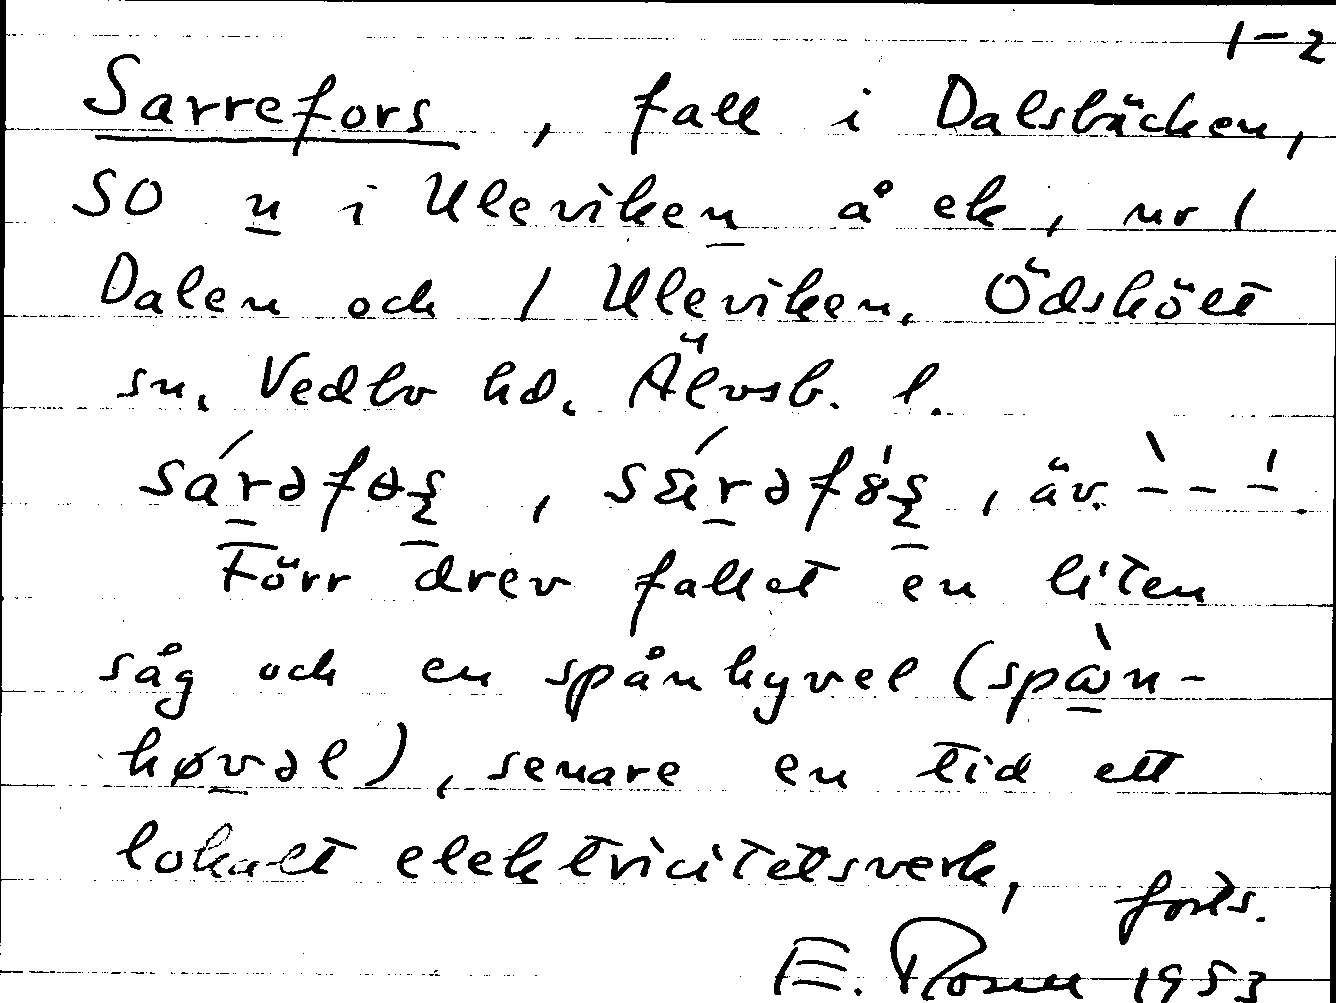 1-2
Sarrefors, fall i Dalsbäcken,
SO u i Uleviken å ek, nr 1
Dalen och 1 Uleviken. Ödskölt
sn. Vedbo hd. Älvsb. l.
äv.
Förr drev fallet en liten
såg och en spånhyvel (spån-
høvəl), senare en tid ett
lokalt elektricitetsverk, forts.
E. Rosell 1953